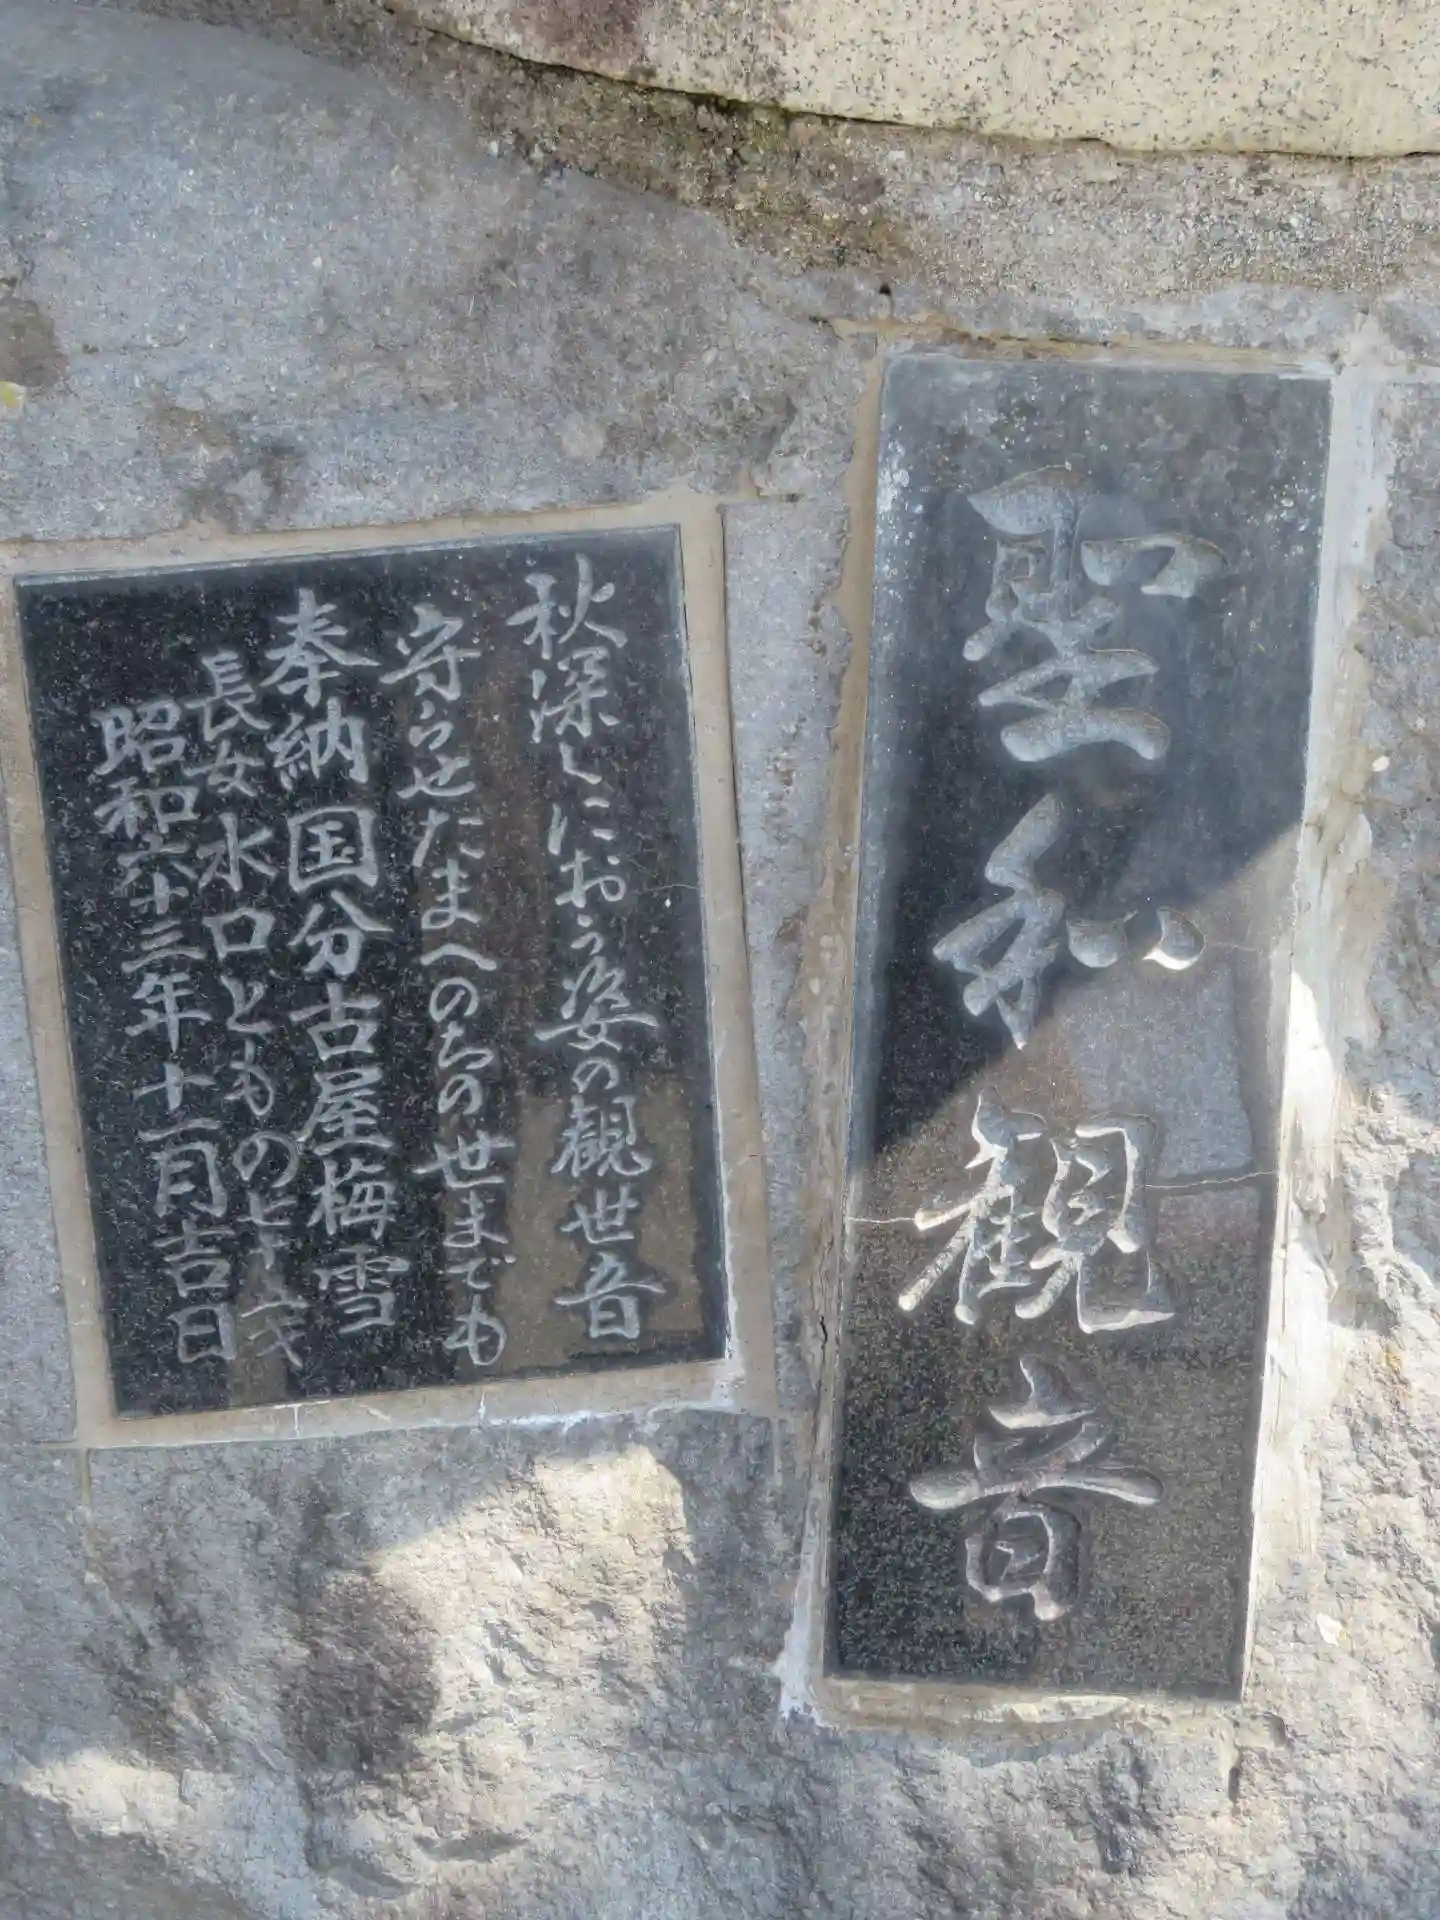 聖和観音
秋深くにおう姿の観世音
守らせたまへのちの世までも
奉納 国分古屋梅雪
長女水口ともの七十二才
昭和六十三年十一月吉日